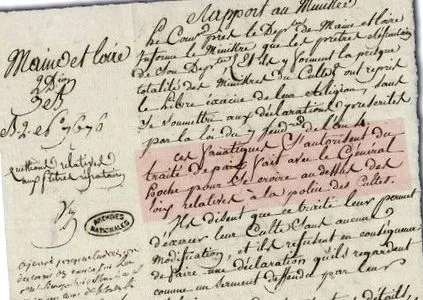 Rapport au Ministre
Maine et Loire
2e Don
3e B
B 2. 6. 7676
questions relatives
aux Pretres refractaires
ARCHIVES
NATIONALES
Le Comre près le Deptem de Maine et loire
informe le Ministre que les prêtres réfractaires
de son Deptem Et ils y forment la presque
totalité des Ministres du Culte ont repris
le libre exercice de leur Religion, sans
se soumettre aux déclarations prescrites
par la loi du 7 Vendre de l'an 4.
ces fanatiques s'autorisent du
traité de paix fait avec le Général
Hoche pour se croire au dessus des
lois relatives à la police des Cultes.
Ils disent que ce traité leur permet
d'exercer leur Culte sans aucune
modification et ils refusent en conséquence
de faire une déclaration qu'ils regardent
comme un serment deffendu par leur
détails